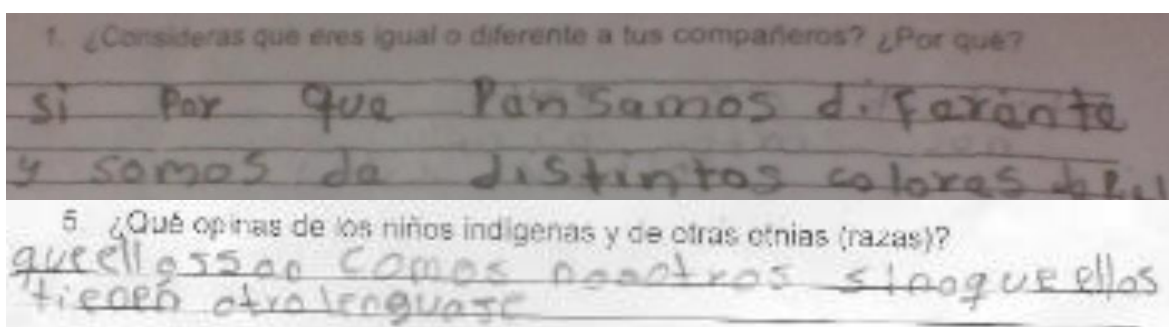 1. ¿Consideras que eres igual o diferente a tus compañeros? ¿Por qué?
si por que Pansamos diferante
y somos de distintos colores de
5. ¿Qué opinas de los niños indígenas y de otras etnias (razas)?
que ellos son comos nosotros sinoque ellos
tienen otra lenguase